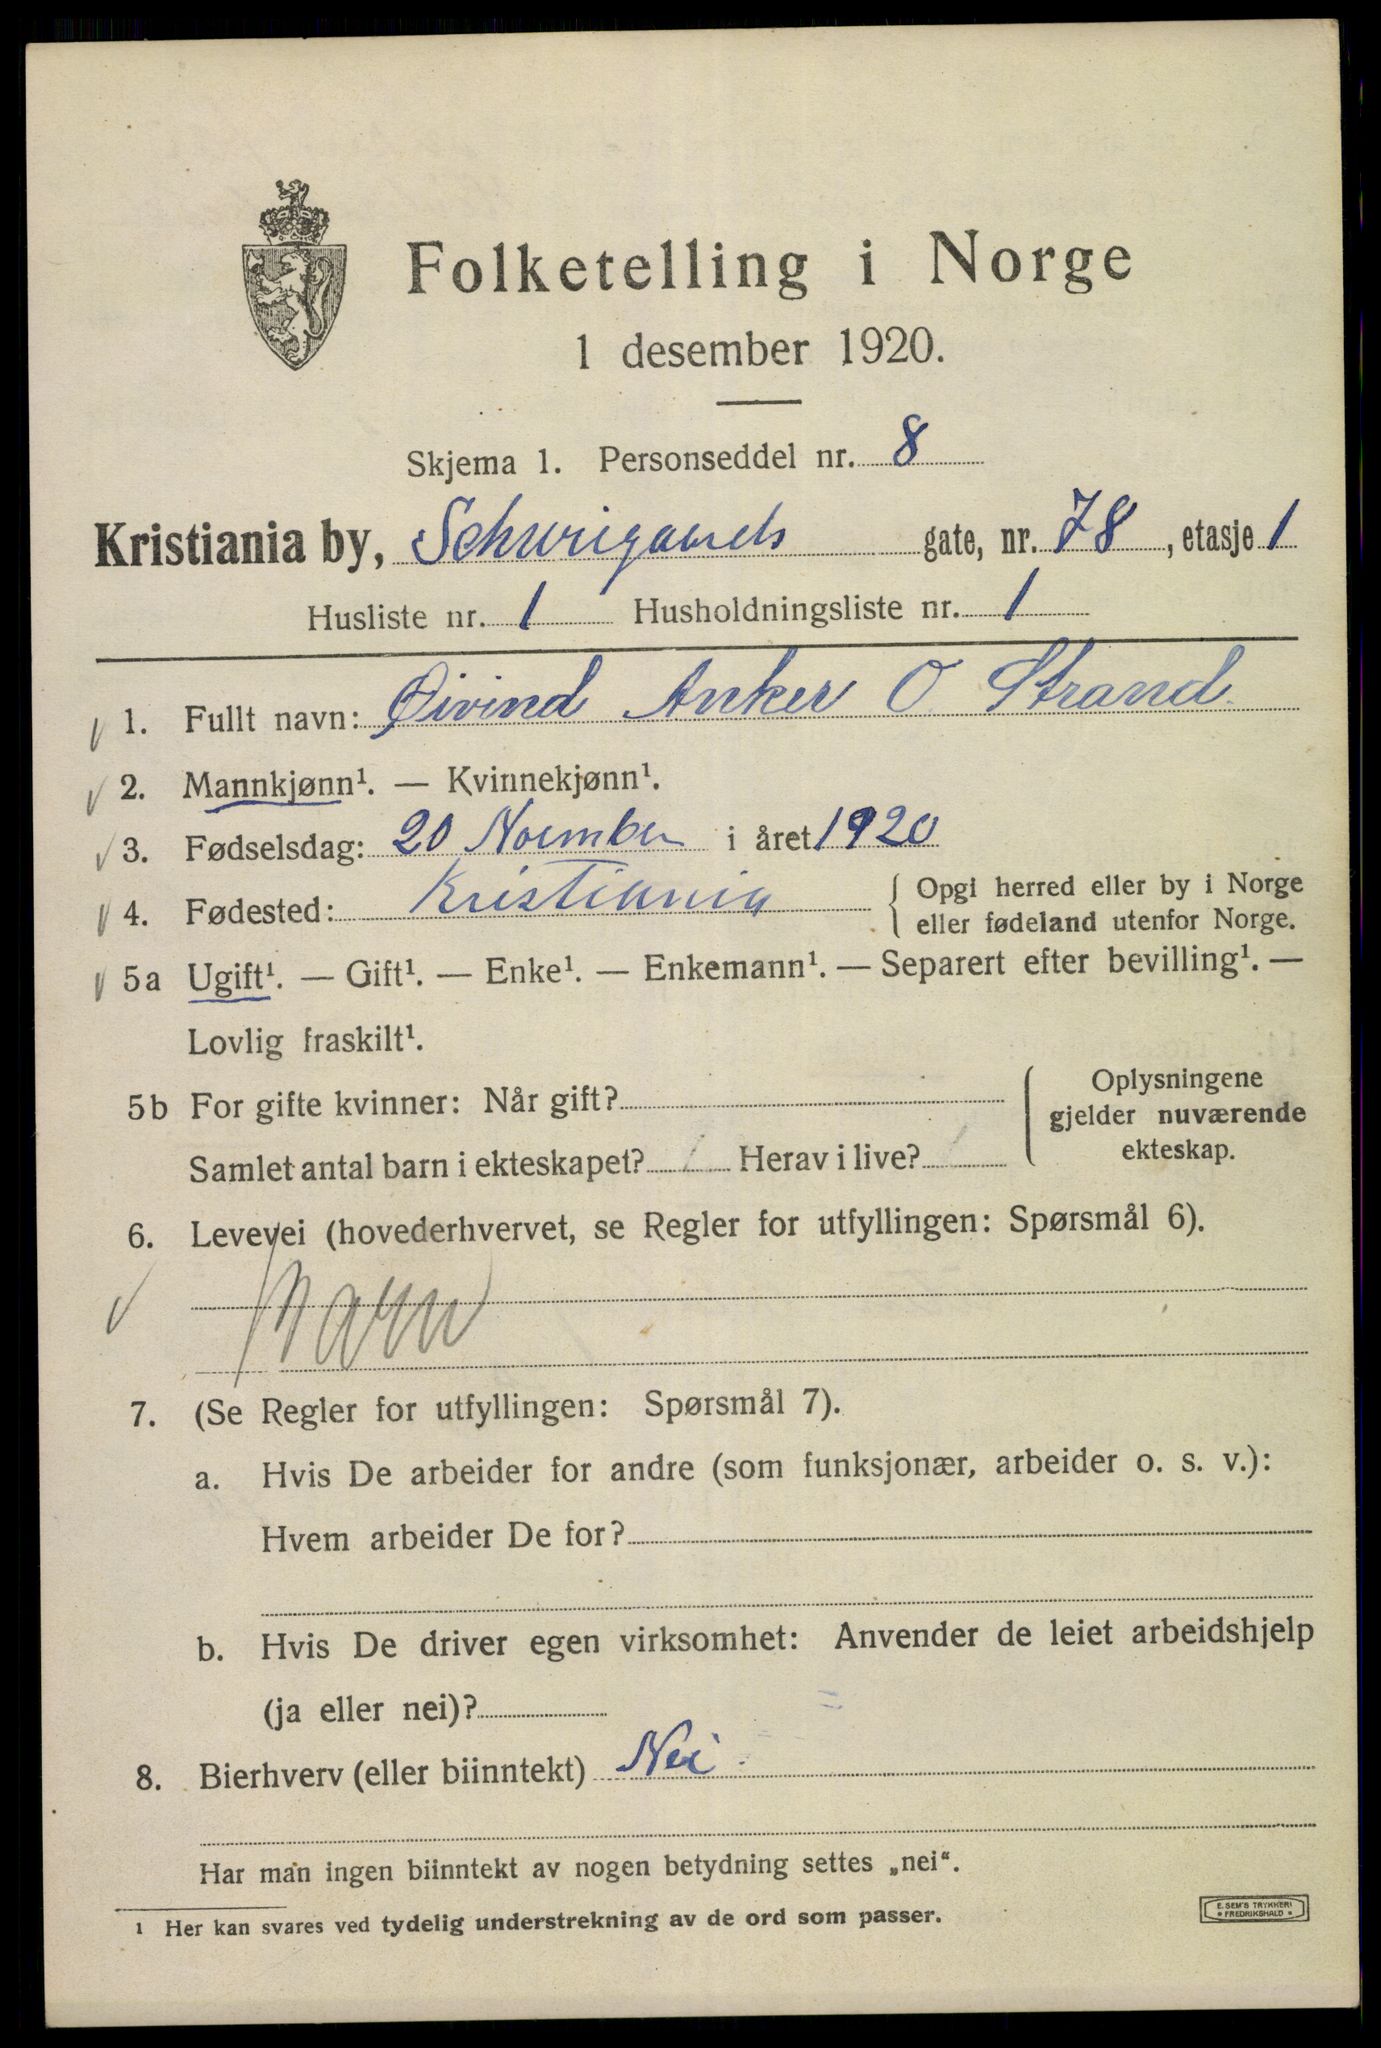 Folketelling i Norge
1 desember 1920.
Skjema 1. Personseddel nr. 8
Kristiania by, Schweigaards gate, nr. 78, etasje 1
Husliste nr. 1 Husholdningsliste nr. 1
1. Fullt navn: Øivind Anker O. Strand.
2. Mannkjønn¹. — Kvinnekjønn¹.
3. Fødselsdag: 20 November i året 1920
4. Fødested: Kristiania { Opgi herred eller by i Norge
eller fødeland utenfor Norge.
5a Ugift¹. — Gift¹. — Enke¹. — Enkemann¹. — Separert efter bevilling¹. —
Lovlig fraskilt¹.
5b For gifte kvinner: Når gift?
Samlet antal barn i ekteskapet? / Herav i live? /
{ Oplysningene
gjelder nuværende
ekteskap.
6. Levevei (hovederhvervet, se Regler for utfyllingen: Spørsmål 6).
Barn
7. (Se Regler for utfyllingen: Spørsmål 7).
a. Hvis De arbeider for andre (som funksjonær, arbeider o. s. v.):
Hvem arbeider De for?
b. Hvis De driver egen virksomhet: Anvender de leiet arbeidshjelp
(ja eller nei)?
8. Bierhverv (eller biinntekt) Nei
Har man ingen biinntekt av nogen betydning settes „nei“.
¹ Her kan svares ved tydelig understrekning av de ord som passer.
E. SEM'S TRYKKERI
* FREDRIKSHALD *